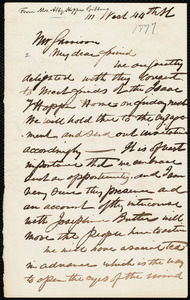 From Mrs. Abby Hopper Gibbons
111 West 44th St
1877
Mr Garrison
My dear friend
We are greatly
delighted with thy consent
to meet friends at the Isaac
Hopper Home on friday next.
We shall hold to the engage
ment, and send out invitations
accordingly — It is of great
importance that we embrace
such an opportunity, and I am
very sure thy presence and
an account of thy intercourse
with Josephine Butler will
move the people here to action
We will have a sacred tea
in advance which is the way
to open the eyes of the mind